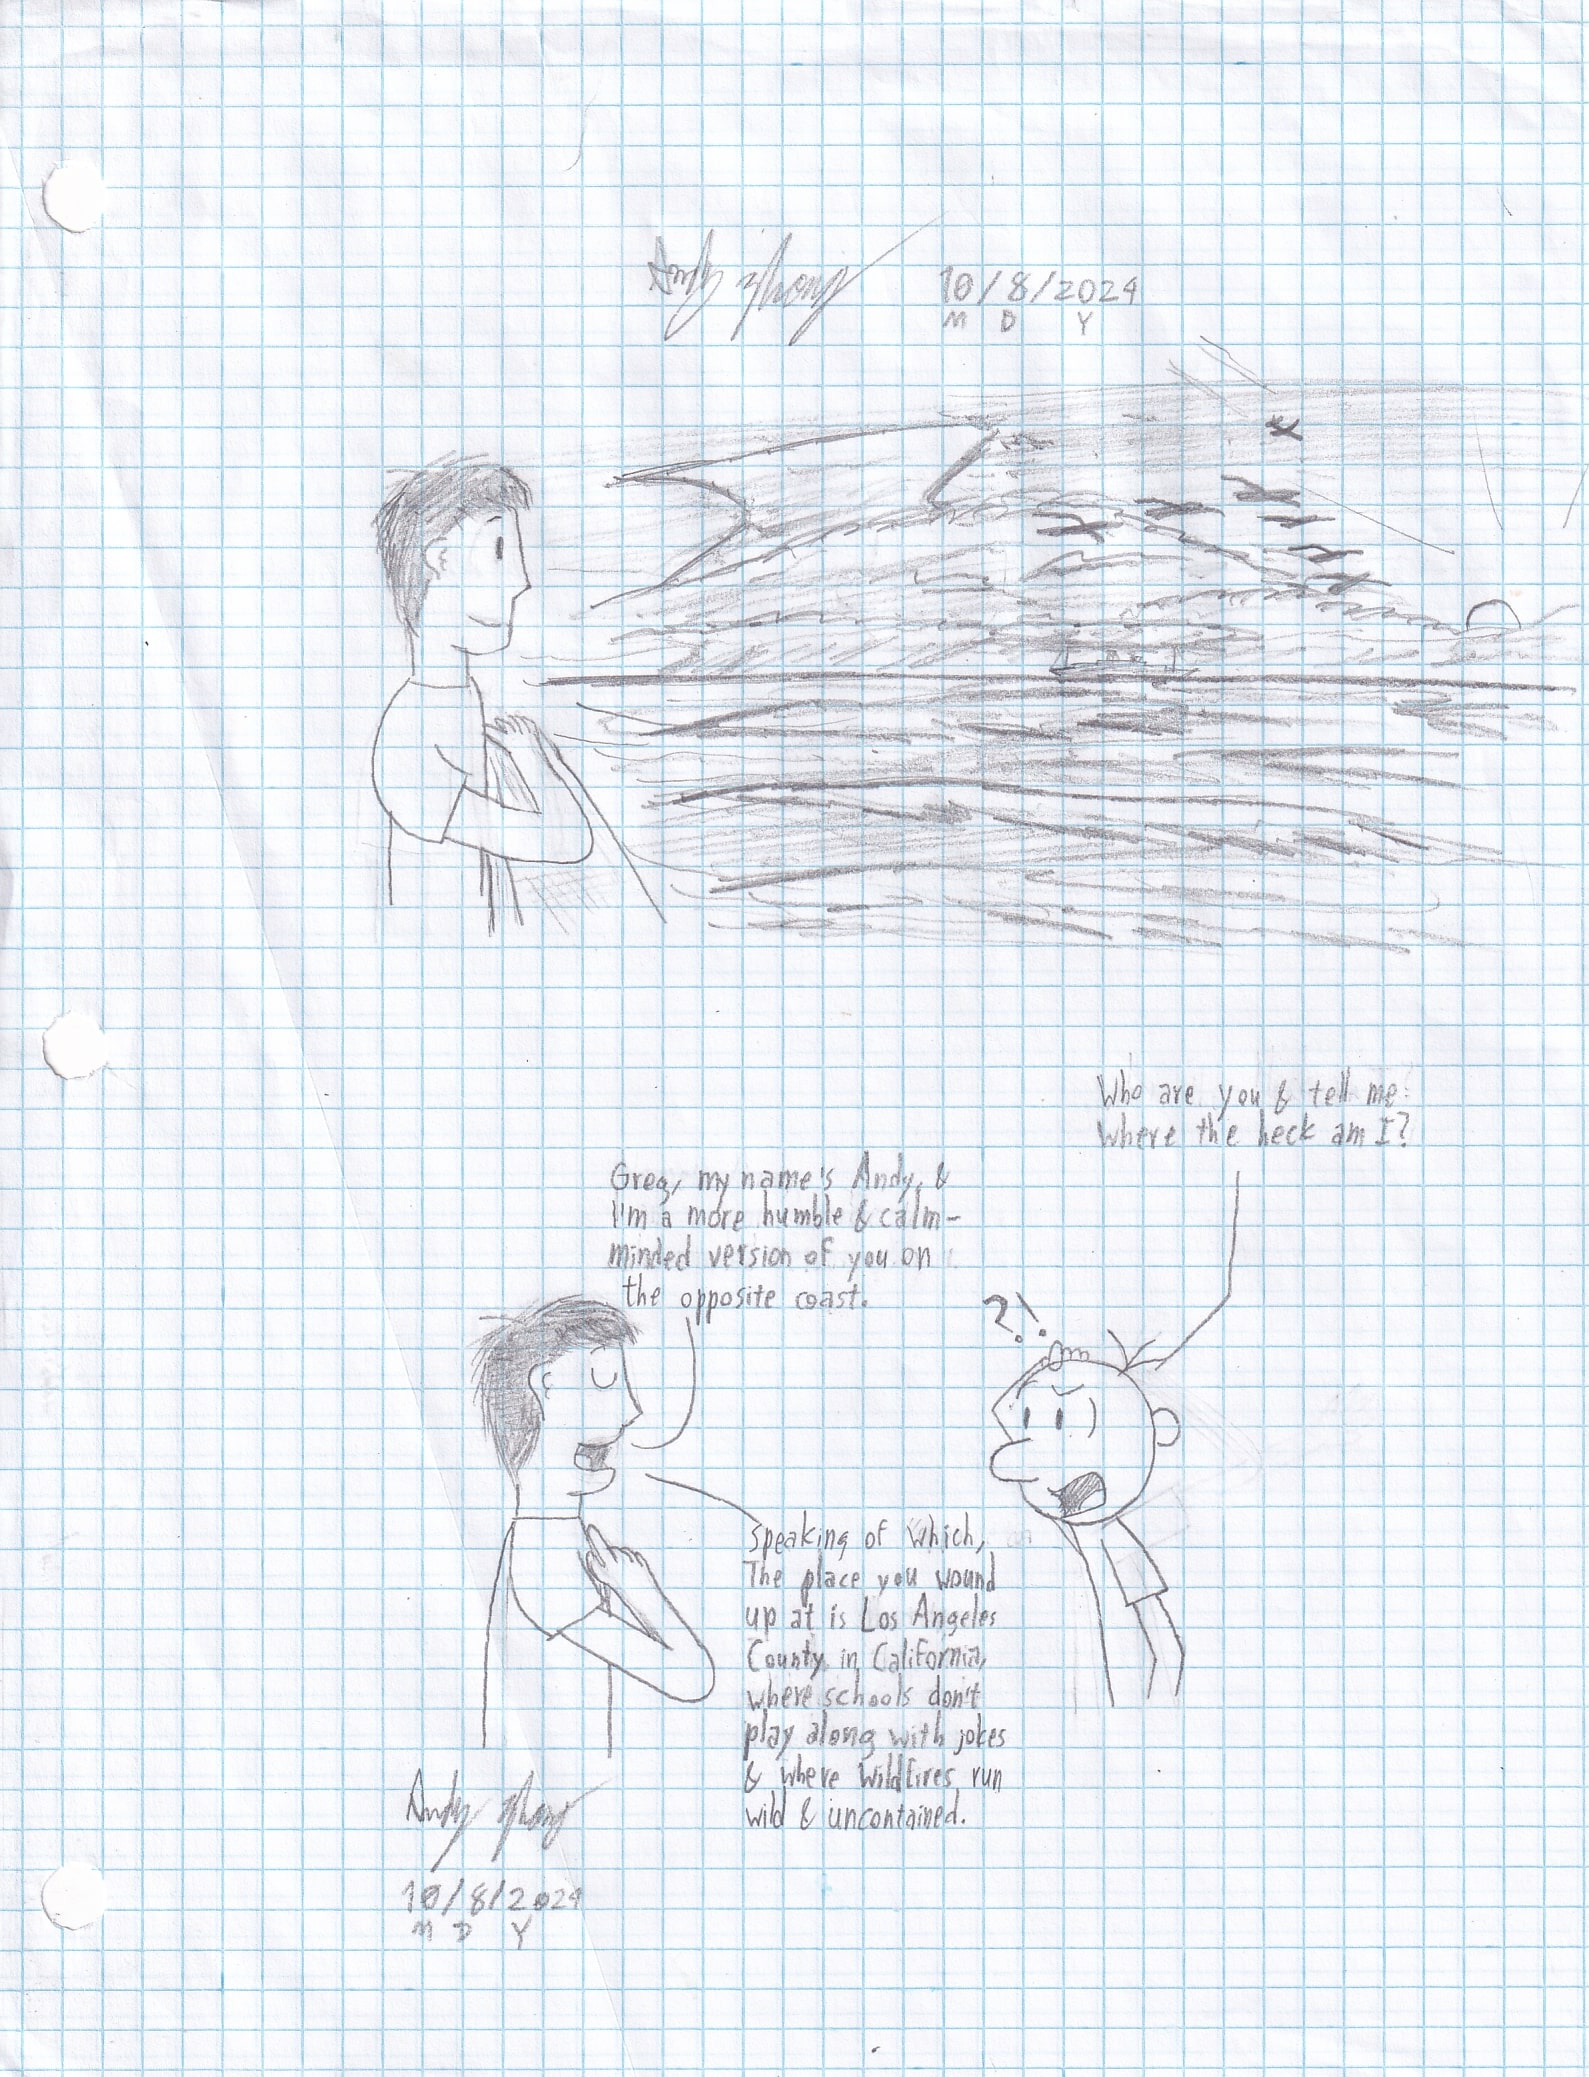 Andy Zhong
10/8/2024
M D Y
Who are you & tell me
where the heck am I?
Greg, my name's Andy, &
I'm a more humble & calm-
minded version of you on
the opposite coast.
?!
Speaking of which,
The place you wound
up at is Los Angeles
County in California,
where schools don't
play along with jokes
& where wildfires run
wild & uncontained.
Andy Zhong
10/8/2024
M D Y